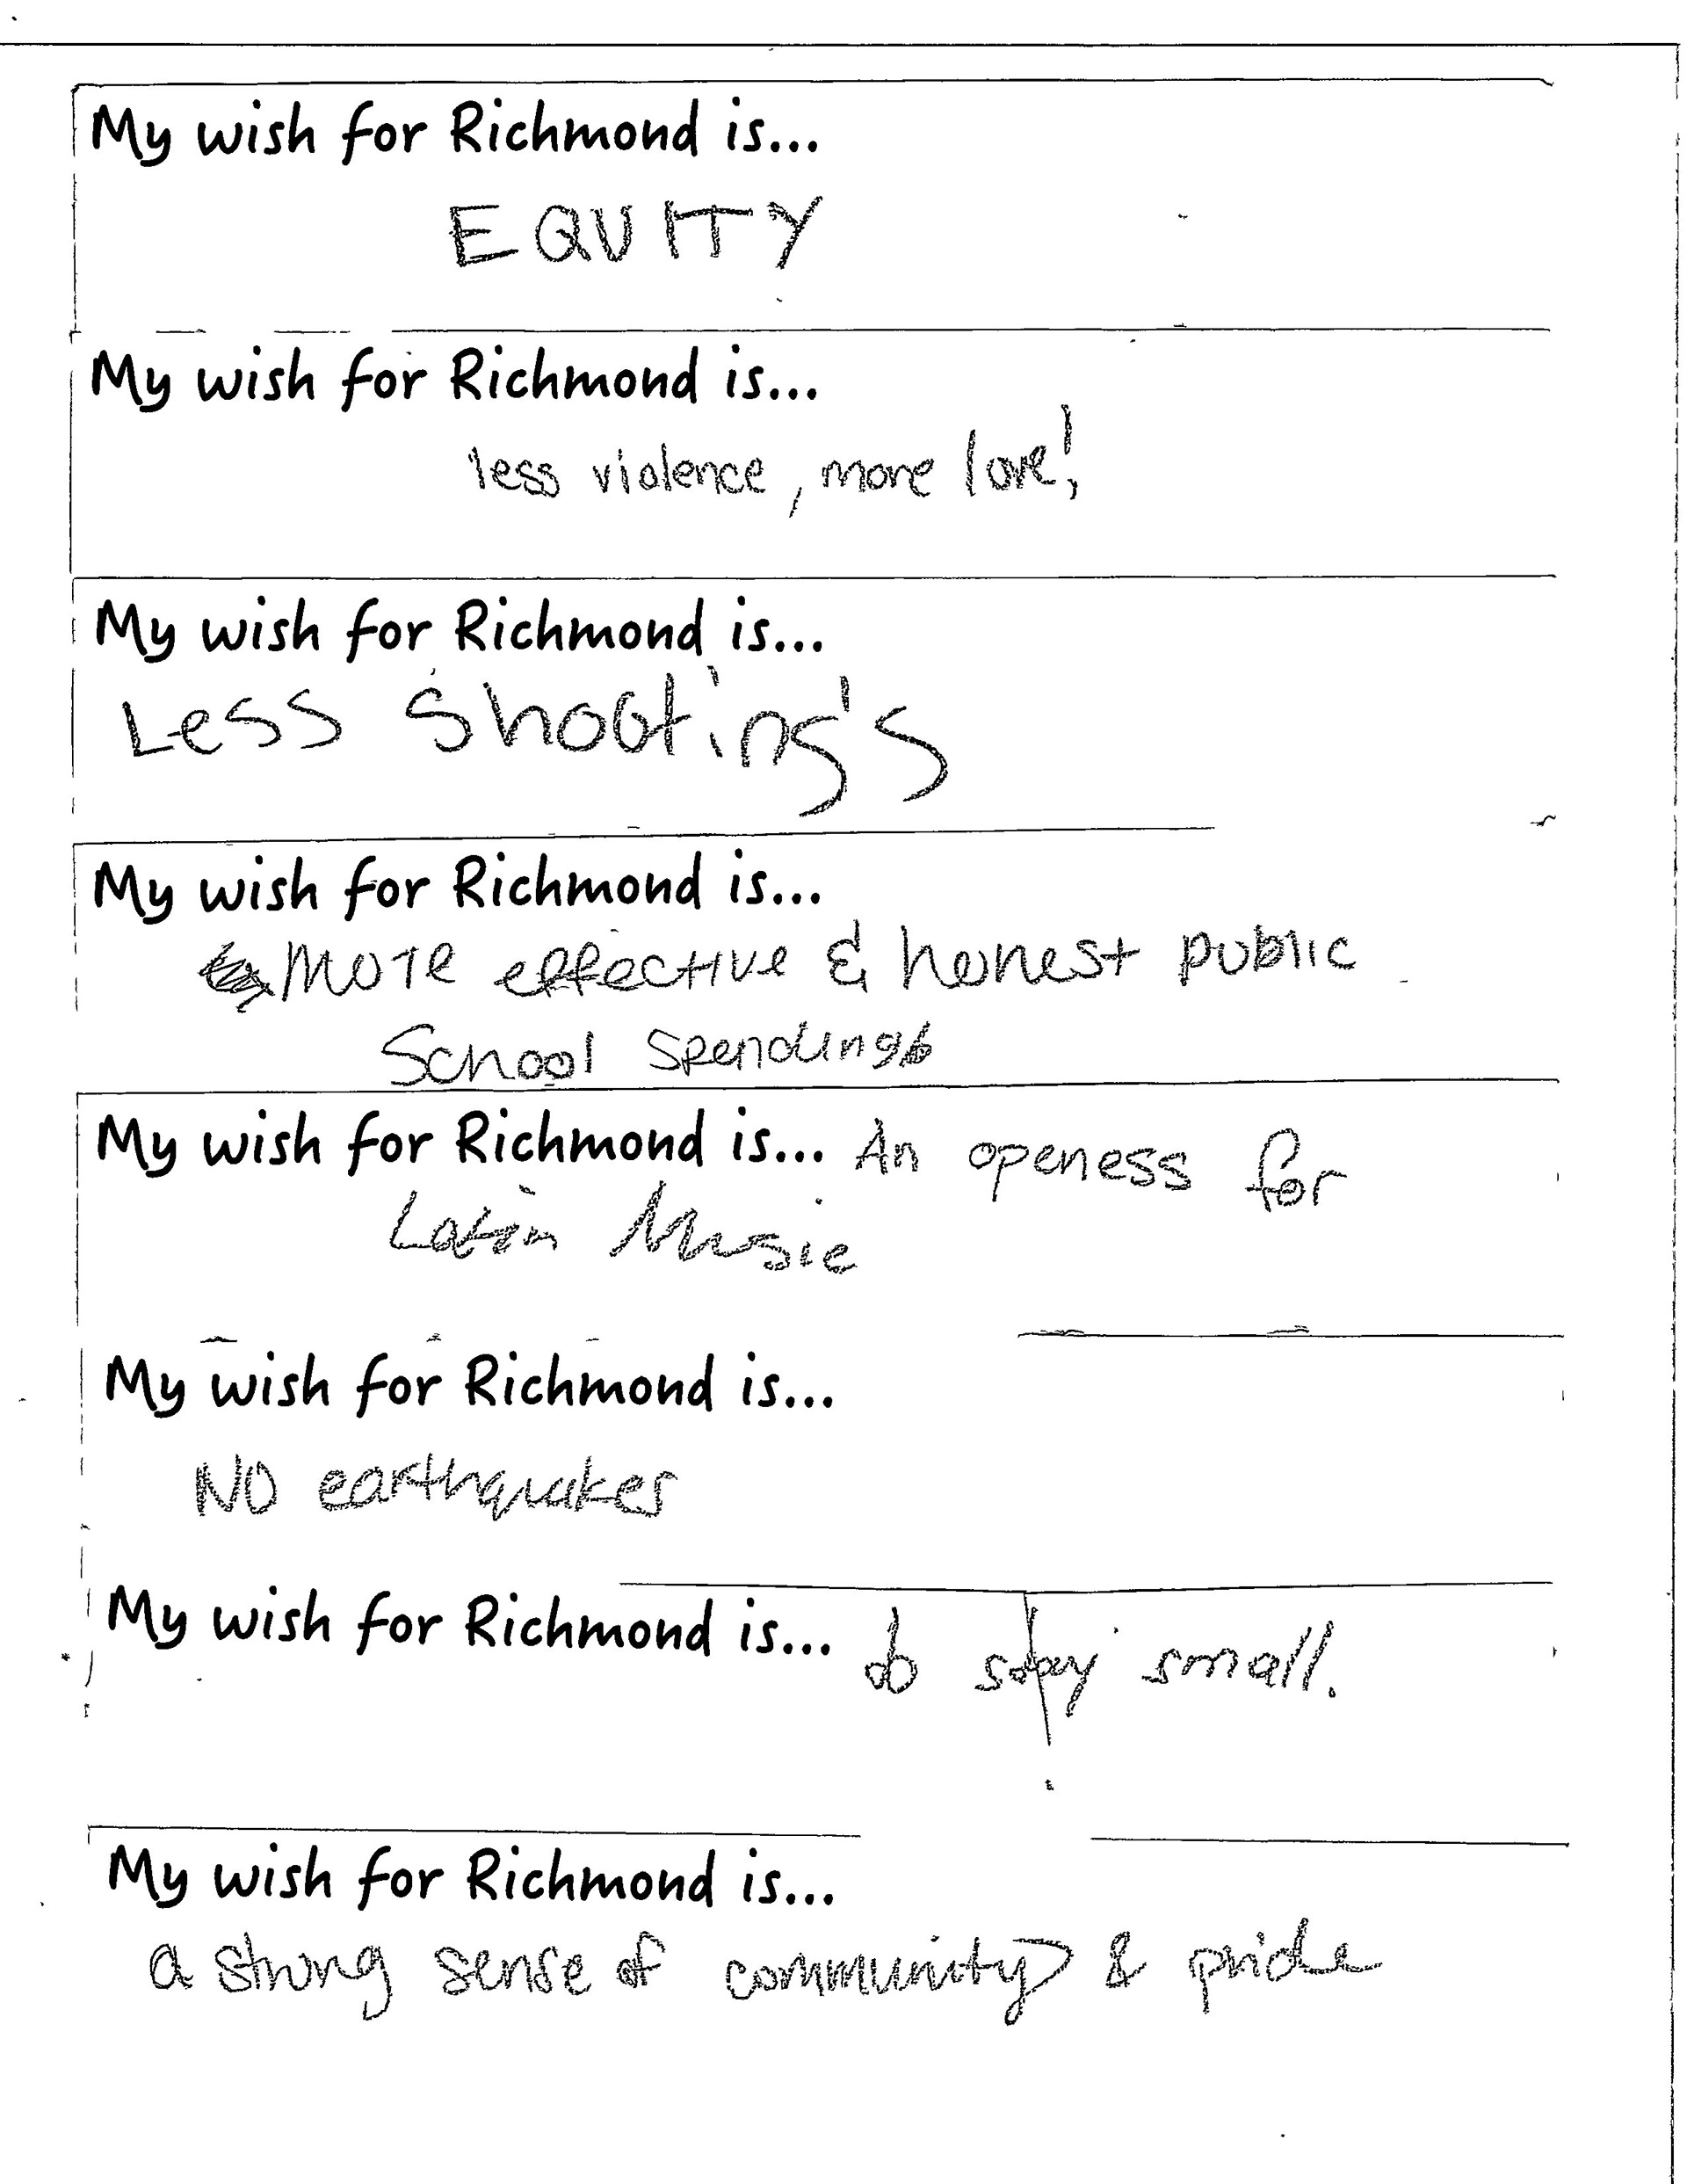 My wish for Richmond is...
EQUITY
My wish for Richmond is...
less violence, more love!
My wish for Richmond is...
Less Shooting's
My wish for Richmond is...
More effective & honest public
School Spending
My wish for Richmond is... An openess for
Latin Music
My wish for Richmond is...
NO earthquakes
My wish for Richmond is... to stay small.
My wish for Richmond is...
a strong sense of community & pride